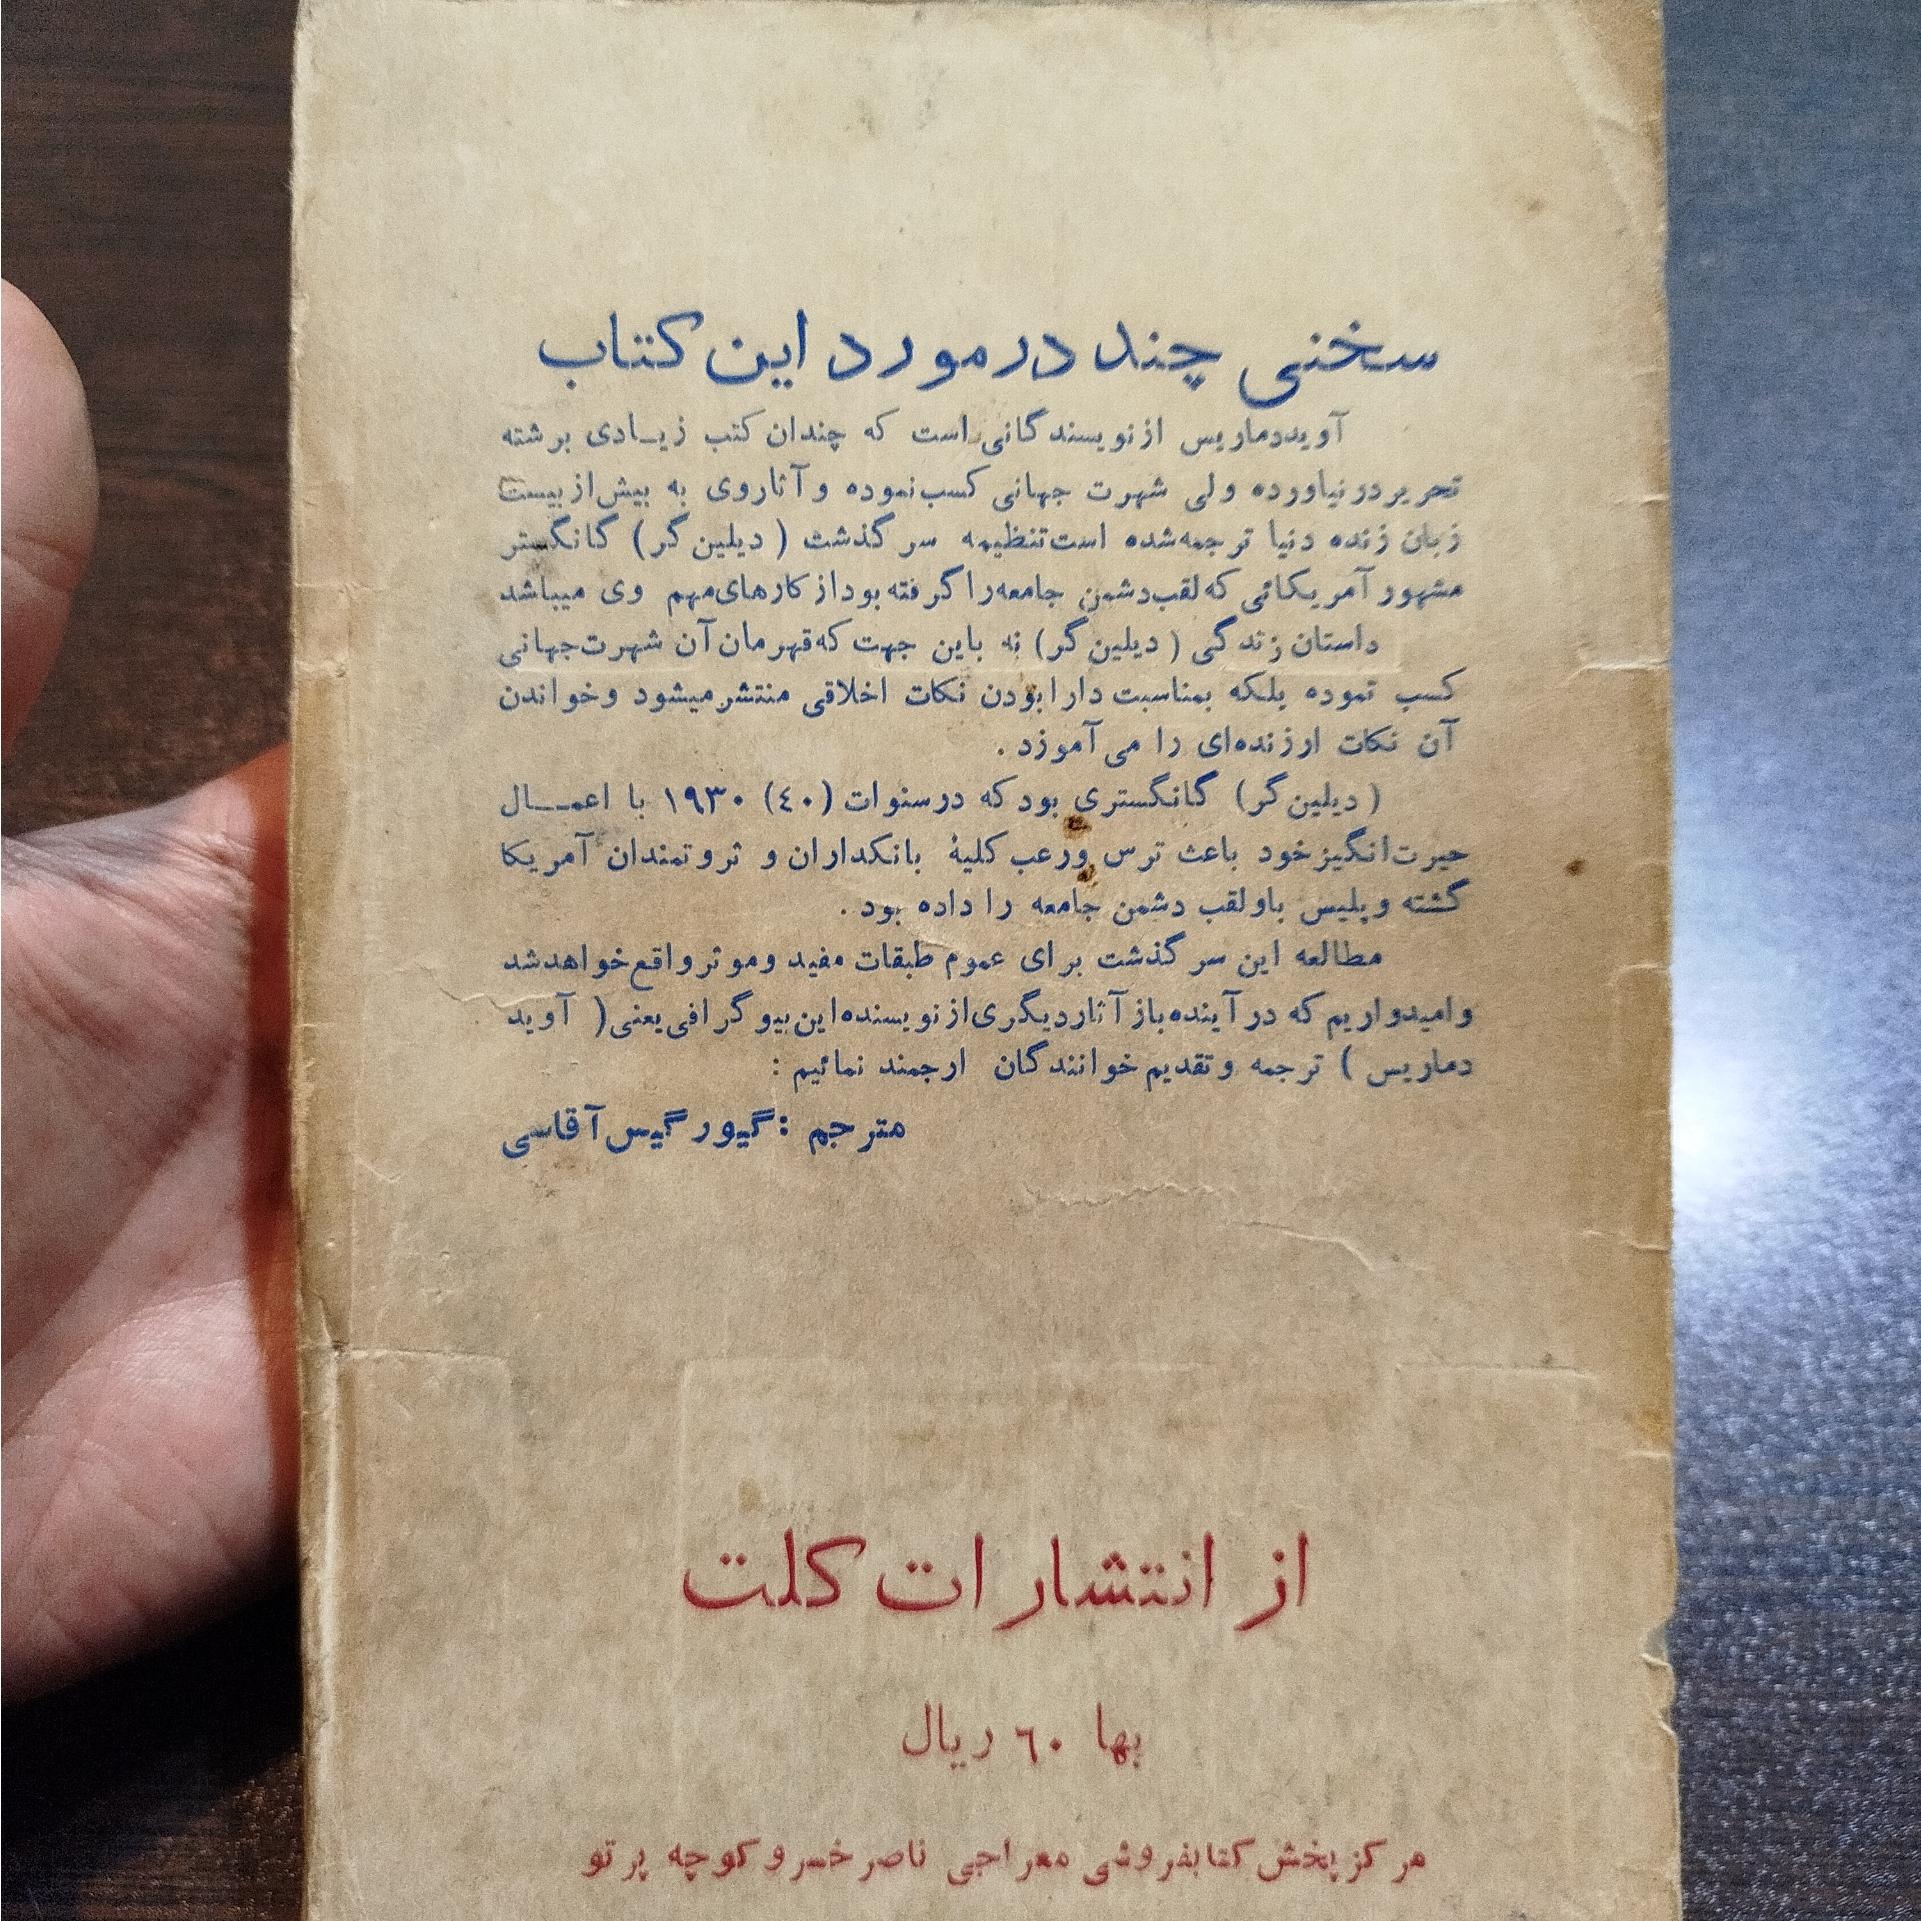 سخنی چند در مورد این کتاب
آوید دماریس از نویسندگانی است که چندان کتب زیـادی برشته
تحریر در نیاورده ولی شهرت جهانی کسب نموده و آثار وی به بیش از بیست
زبان زنده دنیا ترجمه شده است تنظیمه سرگذشت ( دیلین گر ) گانگستر
مشهور آمریکائی که لقب دشمن جامعه را گرفته بود از کارهای مهم وی میباشد
داستان زندگی ( دیلین گر ) نه باین جهت که قهرمان آن شهرت جهانی
کسب نموده بلکه بمناسبت دارا بودن نکات اخلاقی منتشر میشود و خواندن
آن نکات ارزنده‌ای را می آموزد .
( دیلین گر ) گانگستری بود که در سنوات (٤٠) ١٩٣٠ با اعمـــال
حیرت انگیز خود باعث ترس ورعب کلیهٔ بانکداران و ثروتمندان آمریکا
گشته و پلیس باو لقب دشمن جامعه را داده بود .
مطالعه این سرگذشت برای عموم طبقات مفید و موثر واقع خواهد شد
و امیدواریم که در آینده باز آثار دیگری از نویسنده این بیوگرافی یعنی ( آوید
دماریس ) ترجمه و تقدیم خوانندگان ارجمند نمائیم :
مترجم : گیور گیس آقاسی
از انتشارات کلت
بها ٦٠ ریال
مرکز پخش کتابفروشی معراجی ناصر خسرو کوچه پرتو